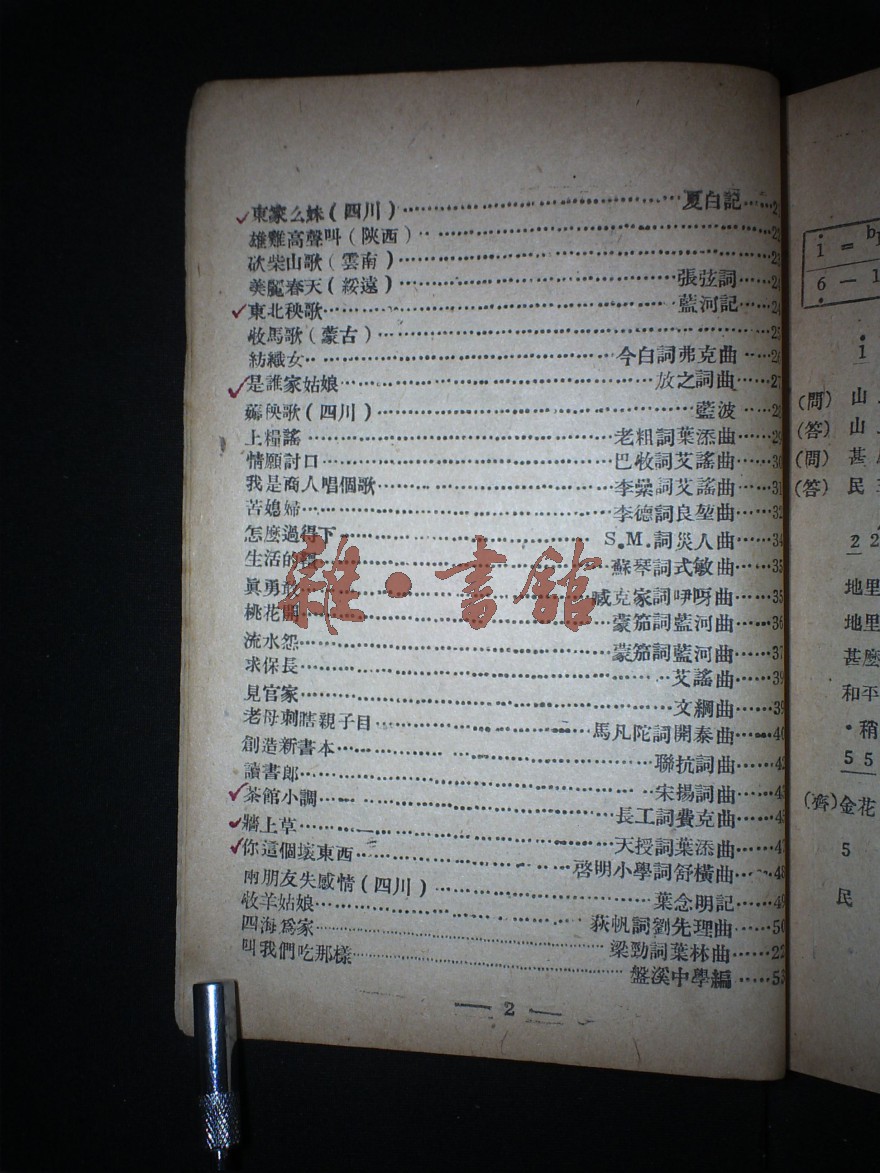 東家么妹(四川)……夏白記……2
雄雞高聲叫(陝西)……22
砍柴山歌(雲南)……23
美麗春天(綏遠)……張弦詞……24
東北秧歌……藍河記……24
牧馬歌(蒙古)……25
紡織女……今白詞弗克曲……26
是誰家姑娘……放之詞曲……27
薅秧歌(四川)……藍波……28
上糧謠……老粗詞葉添曲……29
情願討口……巴牧詞艾謠曲……30
我是商人唱個歌……李樂詞艾謠曲……31
苦媳婦……李德詞良堃曲……32
怎麼過得下……S.M.詞災人曲……34
生活的……蘇琴詞式敏曲……35
眞勇敢……臧克家詞咿呀曲……35
桃花開……蒙笳詞藍河曲……36
流水怨……蒙笳詞藍河曲……37
求保長……艾謠曲……39
見官家……文綱曲……39
老母刺瞎親子目……馬凡陀詞開泰曲……40
創造新書本……聯抗詞曲……42
讀書郎……宋揚詞曲……43
茶館小調……長工詞費克曲……45
牆上草……天授詞葉添曲……47
你這個壞東西……啓明小學詞舒橫曲……48
兩朋友失感情(四川)……葉念明記……49
牧羊姑娘……荻帆詞劉先理曲……50
四海爲家……梁勁詞葉林曲……22
叫我們吃那樣……盤溪中學編……53
— 2 —
雜·書館
i = b
6 — 1
i
(問) 山
(答) 山
(問) 甚
(答) 民
2 2
地里
地里
甚麼
和平
·稍
5 5
(齊)金花
5
民